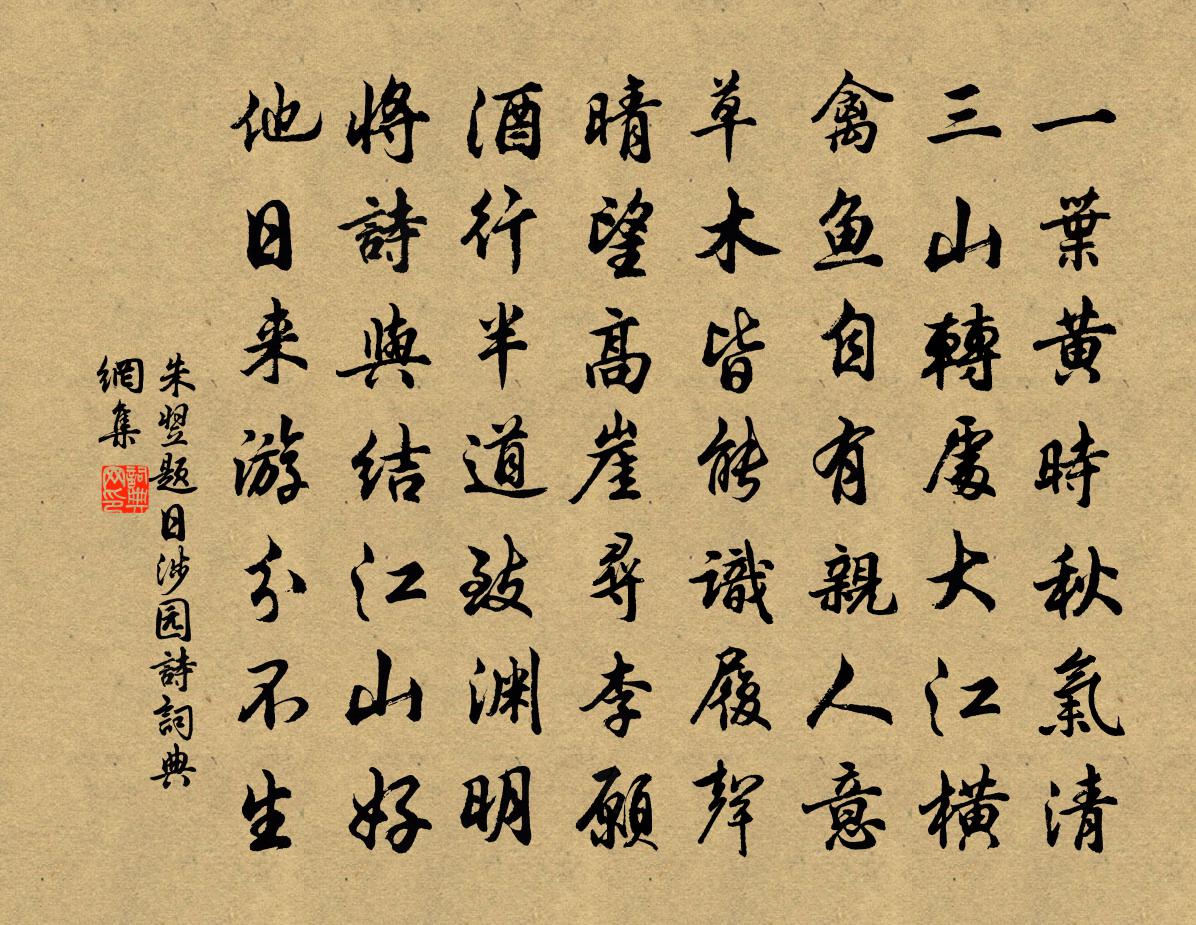 一葉黄時秋氣清
三山轉處大江橫
禽鱼自有親人意
草木皆能識履聲
晴望高崖尋李願
酒行半道致渊明
將詩與结江山好
他日来游分不生
朱翌题日涉园詩詞典
網集
詞典网印